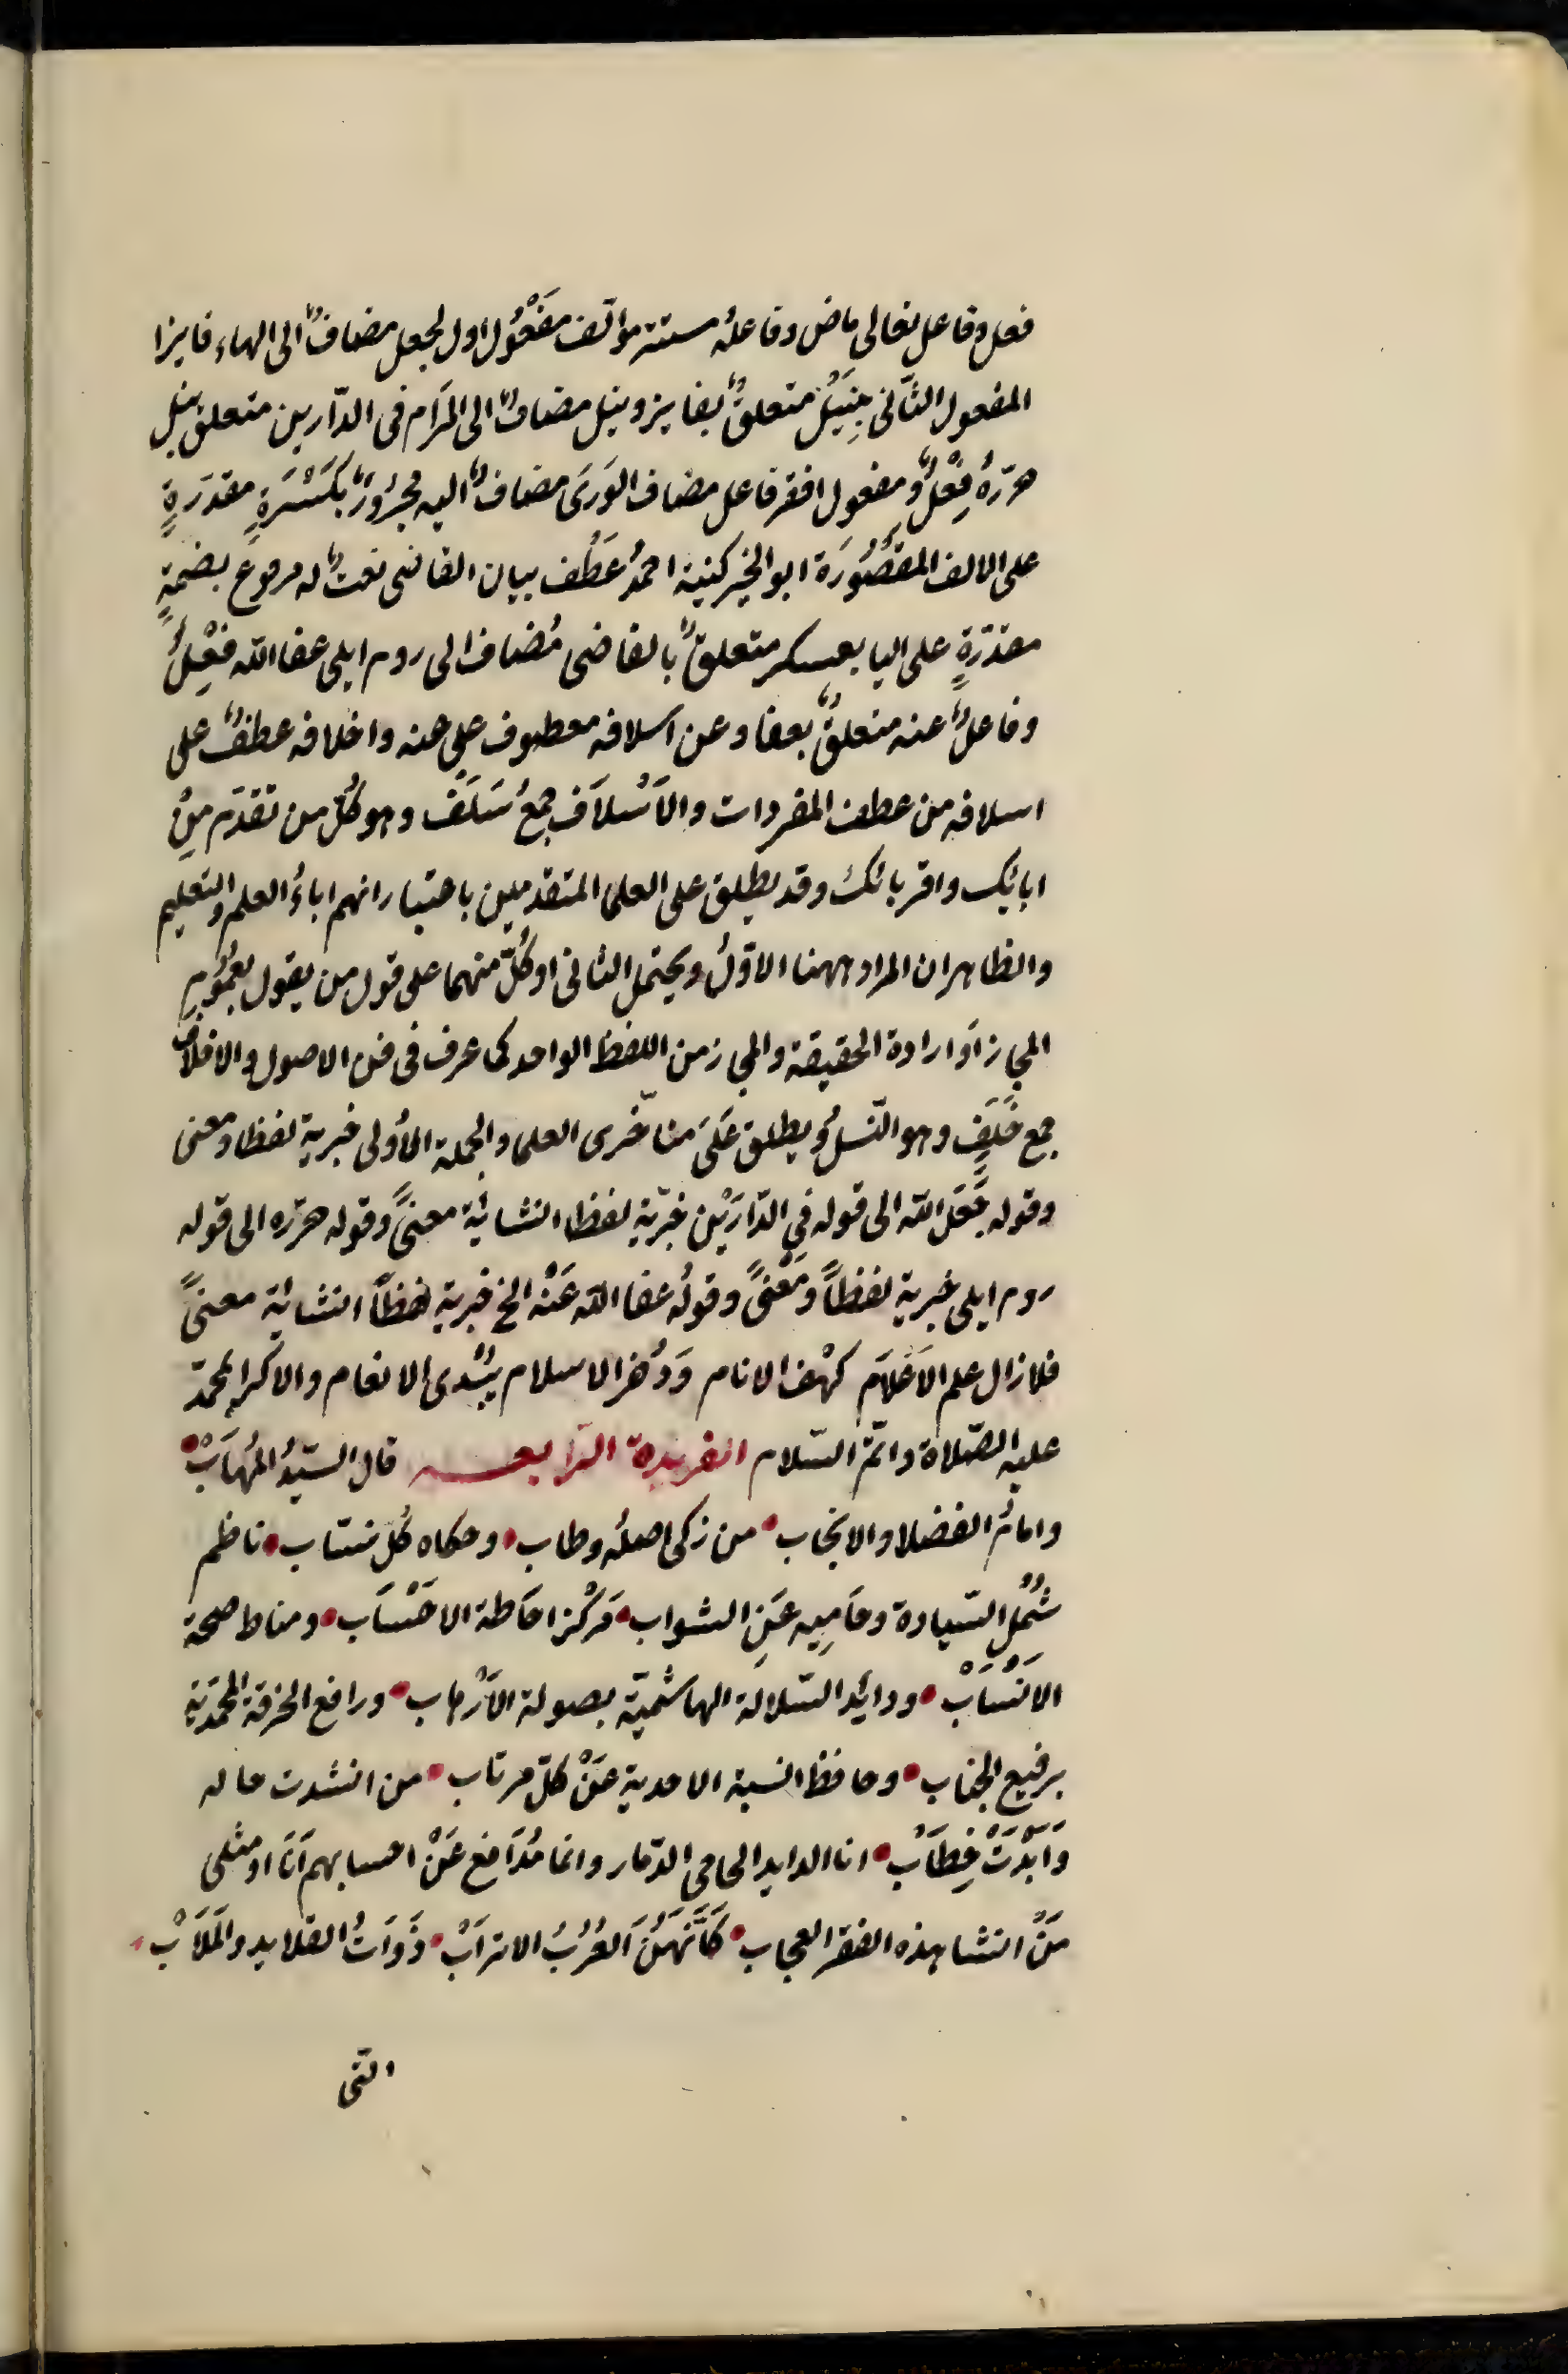 فعل وفاعل تعالى ماض وفاعله مستتر مؤلّف مَفْعُول اول لجعل مضافٌ الى الهاء فايزا
المفعول الثّانى بِنَيْل متعلقٌ بفايز ونيل مضافٌ الى المرَام فى الدّارين متعلق بنيل
حرّرهُ فِعْلٌ ومفعول افقر فاعل مضاف الوَرَى مضافٌ اليه مجرُورٌ بكَسْرَةٍ مقدّرةٍ
على الالف المقصُورَة ابو الخير كنيته احمدُ عَطْف بيان القاضى نعتٌ له مرفوع بضمّةٍ
مقدّرةٍ على اليا بعسكر متعلقٌ بالقاضى مُضاف الى روم ايلى عفا الله فِعْلٌ
وفاعلٌ عنه متعلقٌ بعفا وعن اسلافه معطوف على عنه واخلافه عطفٌ على
اسلافه من عطف المفردات والاَسْلاَف جمعُ سَلَف وهو كُلّ من تقدّم مِن
ابائك واقربائك وقد يطلق على العلما المتقدمين باعتبار انهم اباءُ العلم والتعليم
والظاهر ان المراد ههنا الاوّلُ ويحتمل الثانى او كُلٌّ منهما على قول من يقول بعمُومِ
المجاز اَو ارادة الحقيقة والمجاز من اللفظ الواحد كما عرف فى فن الاصول والاخلاف
جمع خَلَفٍ وهو النّسلُ ويطلق عَلَى متأخّرى العلما والجملة الأولى خبرية لفظا ومعنى
وقوله جَعَل الله الى قوله في الدّارَيْن خبريّة لفظا انشائية معنىً وقوله حرّره الى قوله
روم ايلى خبرية لفظاً ومَعْنىً وقولُه عفا الله عَنْه الخ خبرية لفظاً انشائية معنىً
فلا زال علم الاَعْلاَم كهْف الانام وَذُخر الاسلام يُسْدى الانعام والاكرام بمحمّد
عليه الصّلاة واتمّ السّلام الفريدة الرّابعـــة قال السّيدُ المُهَابْ
وامامُ الفضلا والانجاب من زكى اصلُه وطاب وحكاه كُلّ نسّاب ناظم
شُمْلِ السّيادة وحَامِيه عَنِ الشواب مَرْكز احَاطة الاحْتسَاب ومناط صحة
الانْسَابْ وذائد السّلالة الهاشميّة بصولة الاَرْهاب ورافع الخرقة المحمّديّة
برفيع الجناب وحافظ النسبة الاحدية عَنْ كلّ مرتاب من انشدت حاله
وَاَبْدَتْ خِطَابْ انا الذايد الحامى الذّمار وانما مُدَافع عَنْ احسابهم اَنَا او مثلى
مَنْ انشا هذه الفقر العجاب كَاَنَّهُنَّ العُرُبُ الاترابْ ذَوَاتُ القلايد والمَلاَبْ
التى